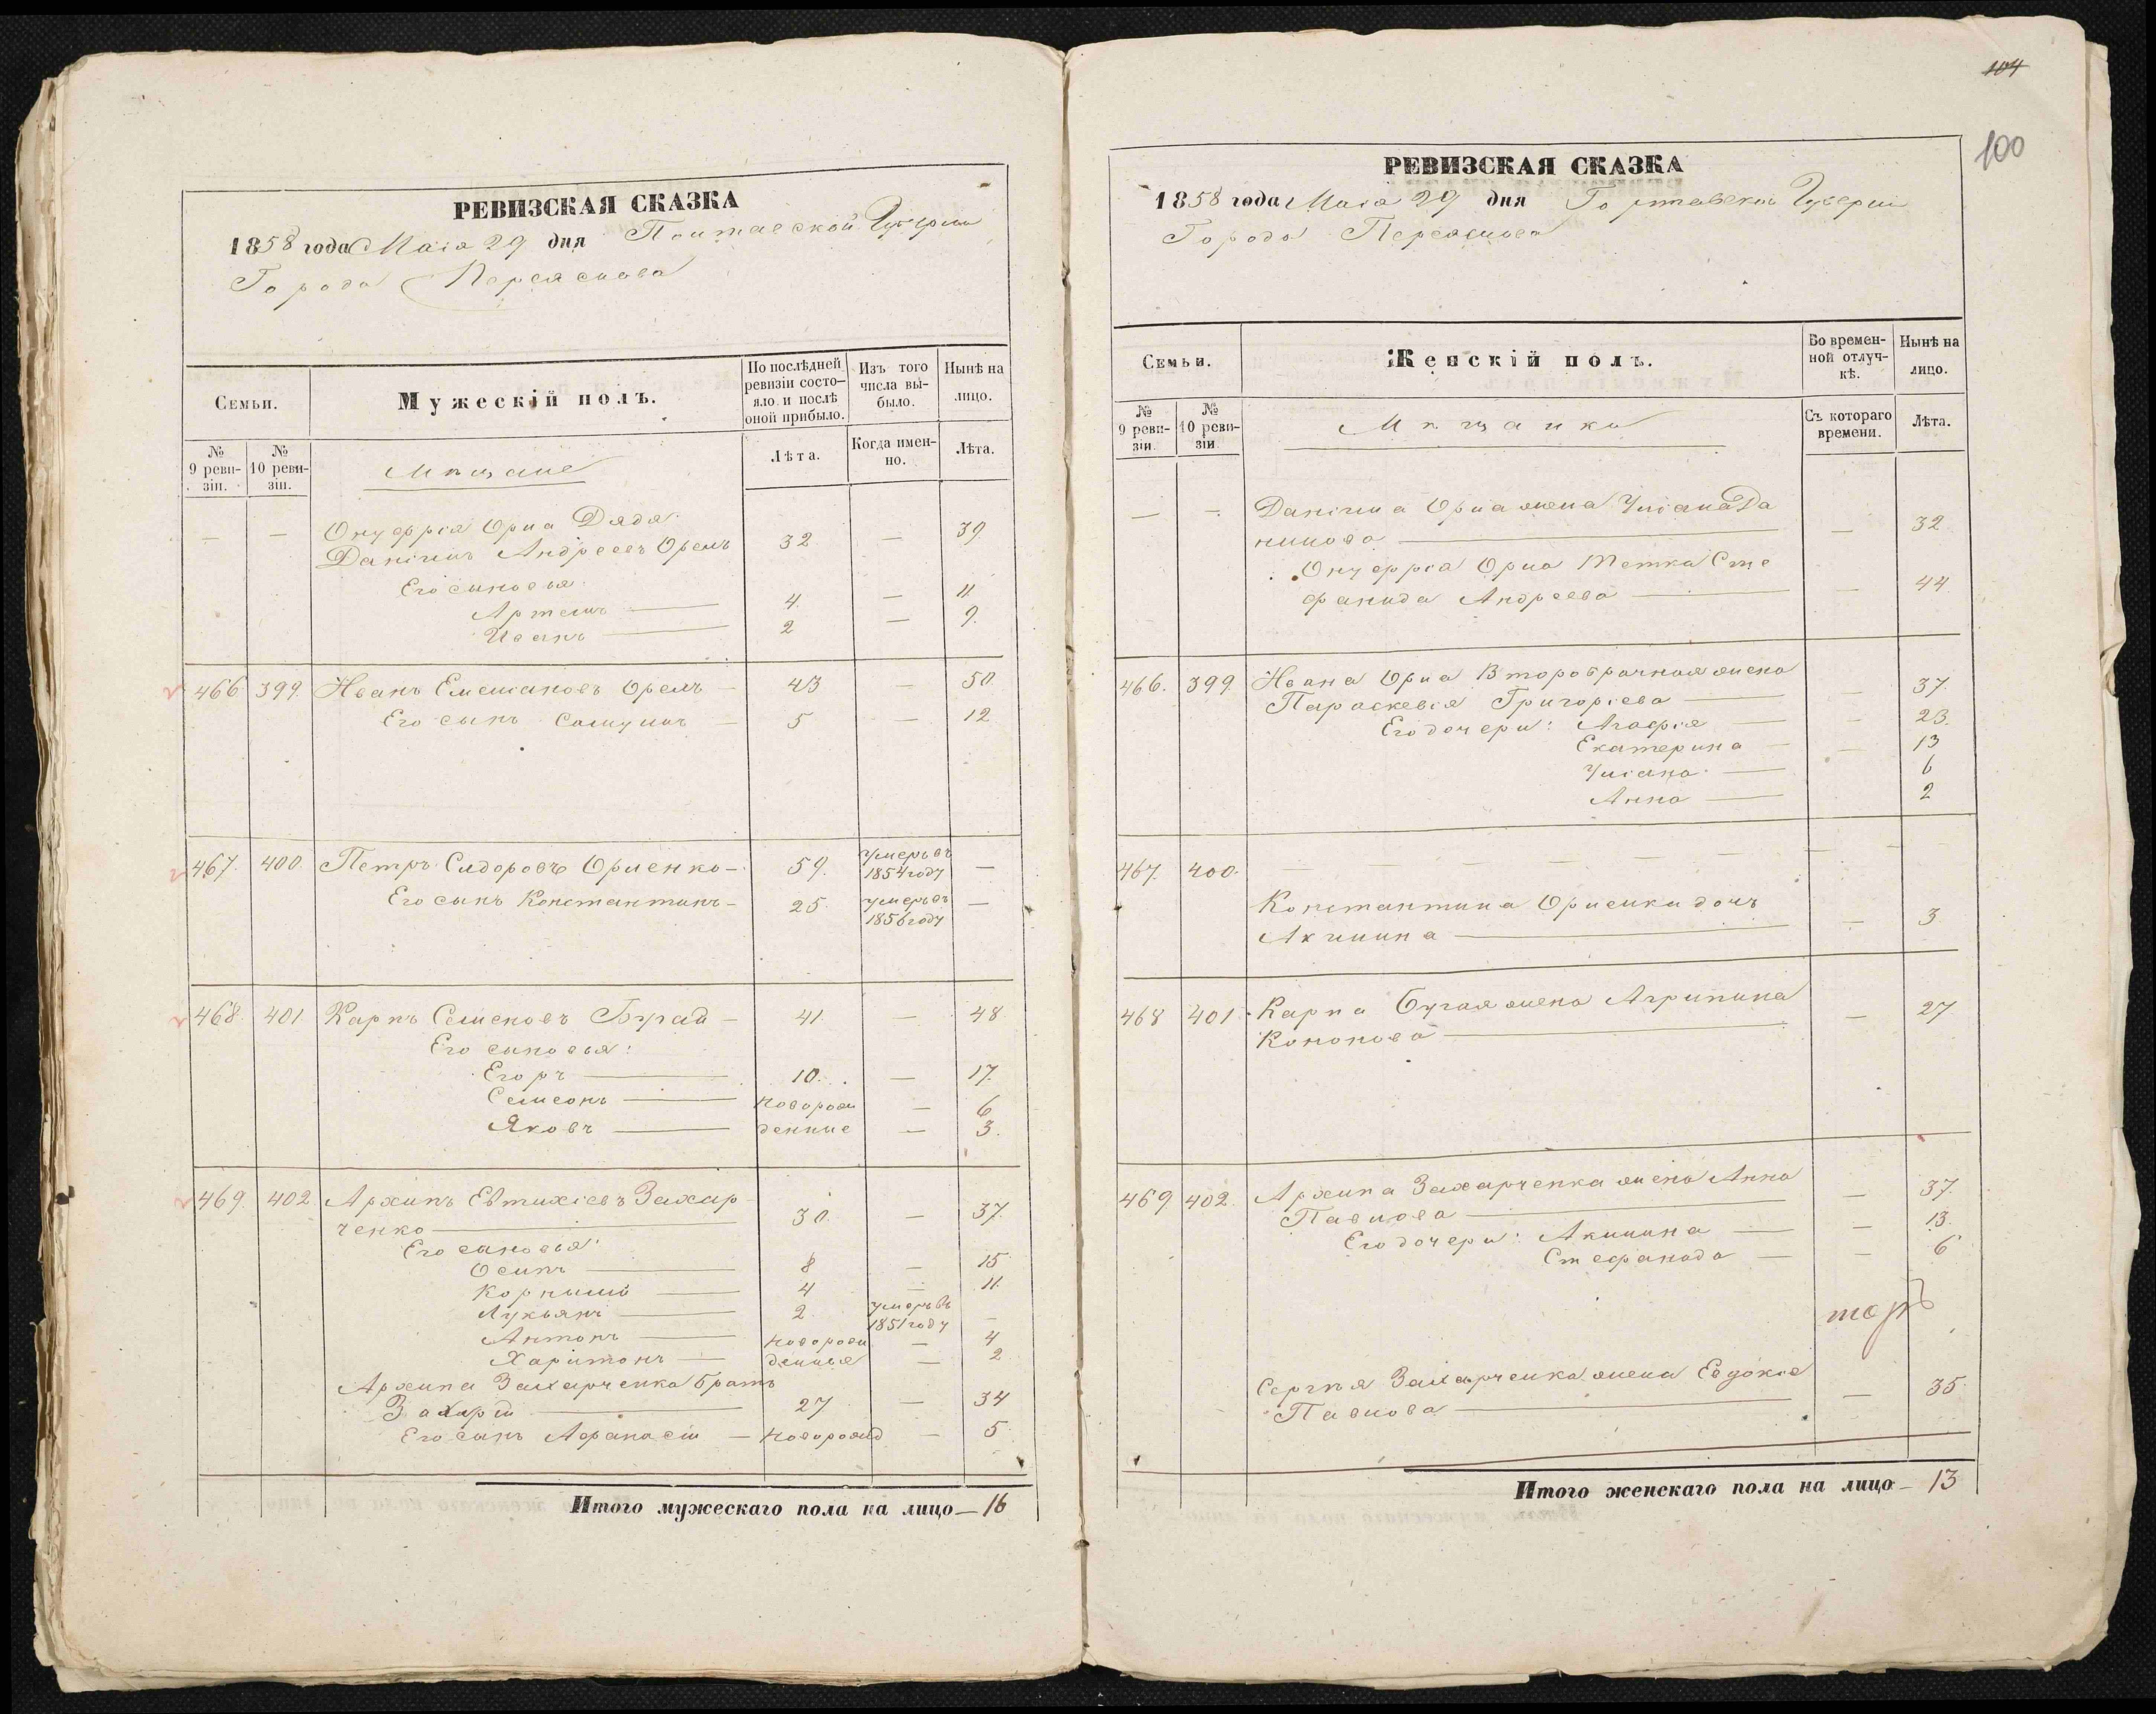 РЕВИЗСКАЯ СКАЗКА
1858 года Маія 29 дня Полтавской Губерніи
Города Переяслова
Семьи.
Мужескій полъ.
По послѣдней ревизіи состояло и послѣ оной прибыло.
Изъ того числа выбыло.
Нынѣ на лицо.
№ 9 ревизіи.
№ 10 ревизіи.
Мѣщане
Лѣта.
Когда именно.
Лѣта.
— — Онуфрія Орла Дядя
Даніилъ Андреевъ Орелъ 32 — 39
Его сыновья
Артемъ — 4. — 11
Иванъ — 2 — 9.
466 399 Иванъ Емельяновъ Орелъ — 43 — 50
Его сынъ Самуилъ — 5 — 12
467. 400. Петръ Сидоровъ Орленко — 59. умеръ въ 1854 году —
Его сынъ Константинъ — 25. умеръ въ 1856 году —
468. 401 Карпъ Семеновъ — 41. — 48
Его сыновья:
Егоръ — 10. — 17.
Семенъ — новорож — 6
Яковъ — денные — 3.
469. 402 Архипъ Евтихіевъ Захар
ченко — 30. — 37.
Его сыновья:
Осипъ — 8 — 15
Корнилій — 4 — 11.
Лукьянъ — 2. умеръ въ 1851 году —
Антонъ — новорож — 4
Харитонъ — денныя — 2
Архипа Захарченка братъ
Захарій — 27 — 34
Его сынъ Афанасій — новорожд — 5
Итого мужескаго пола на лицо — 16
104
100
РЕВИЗСКАЯ СКАЗКА
1858 года Маія 29 дня Полтавской Губерніи
Города Переяслова
Семьи.
Женскій полъ.
Во временной отлучкѣ.
Нынѣ на лицо.
№ 9 ревизіи.
№ 10 ревизіи.
Мѣщанки
Съ котораго времени.
Лѣта.
— — Даніила Орла жена Уліана Да
нилова — — 32
Онуфрія Орла тетка Сте
фанида Андреева — — 44
466. 399. Ивана Орла Второбрачная жена
Параскевія Григоріева — — 37.
Его дочери: Агафія — — 23.
Екатерина — — 13
Уліана — 6
Анна — 2
467. 400. — — — — — — — — — —
Константина Орленка дочь
Акилина — — 3.
468 401. Карпа Бугая жена Агрипина
Кононова — — 27
469. 402. Архипа Захарченка жена Анна
Павлова — — 37.
Его дочери: Акилина — — 13.
Стефанида — — 6
Сергѣя Захарченка жена Евдокія
Павлова — — 35.
Итого женскаго пола на лицо — 13